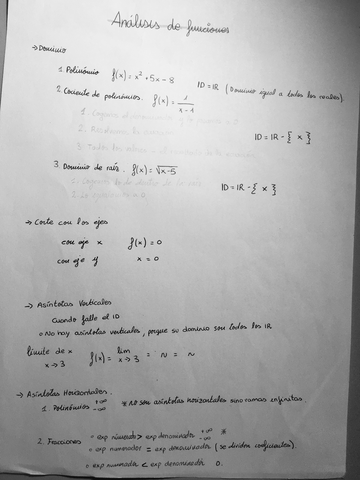 Análisis de funciones
→ Dominio
1. Polinómio f(x) = x² + 5x - 8 ID = IR (Dominio igual a todos los reales).
2. Cociente de polinomios. f(x) = 1/x-1 ID = IR - { x }
3. Dominio de raíz. f(x) = √x-5 ID = IR - { x }
→ Corte con los ejes
con eje x f(x) = 0
con eje y x = 0
→ Asíntotas Verticales
Cuando falle el ID
o No hay asíntotas verticales, porque su dominio son todos los IR
límite de x f(x) = lim = ~ = ~
x → 3 x → 3
→ Asíntotas Horizontales.
1. Polinómios +∞ -∞ No son asíntotas horizontales sino ramas infinitas
2. Fracciones = exp numerador > exp denominador +∞ -∞
= exp numerador = exp denominador (se dividen coeficientes).
o exp numerador < exp denominador 0.